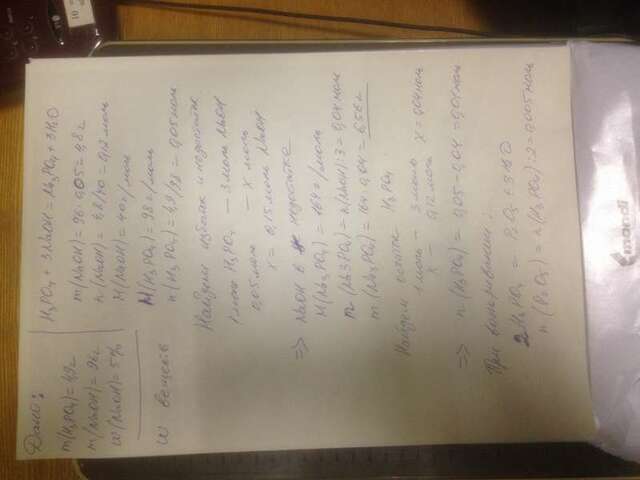 Дано:
m(H₃PO₄)=4,9г
m(NaOH)=96г
w(NaOH)=5%
w веществ
H₃PO₄ + 3NaOH = Na₃PO₄ + 3H₂O
m(NaOH) = 96·0,05 = 4,8г
n(NaOH) = 4,8/40 = 0,12 моль
M(NaOH) = 40г/моль
M(H₃PO₄) = 98г/моль
n(H₃PO₄) = 4,9/98 = 0,05моль
Найдем избыток и недостаток
1 моль H₃PO₄ — 3 моль NaOH
0,05 моль — x моль
x = 0,15 моль NaOH
=> NaOH в недостатке
M(Na₃PO₄) = 164г/моль
n(Na3PO₄) = n(NaOH):3 = 0,04 моль
m(Na₃PO₄) = 164·0,04 = 6,56г
Найдем остаток H₃PO₄
1 моль — 3 моль x = 0,04 моль
x — 0,12 моль
=> n(H₃PO₄) = 0,05-0,04 = 0,01 моль
При выпаривании:
2H₃PO₄ = P₂O₅ + 3H₂O
n(P₂O₅) = n(H₃PO₄):2 = 0,005 моль
mondi